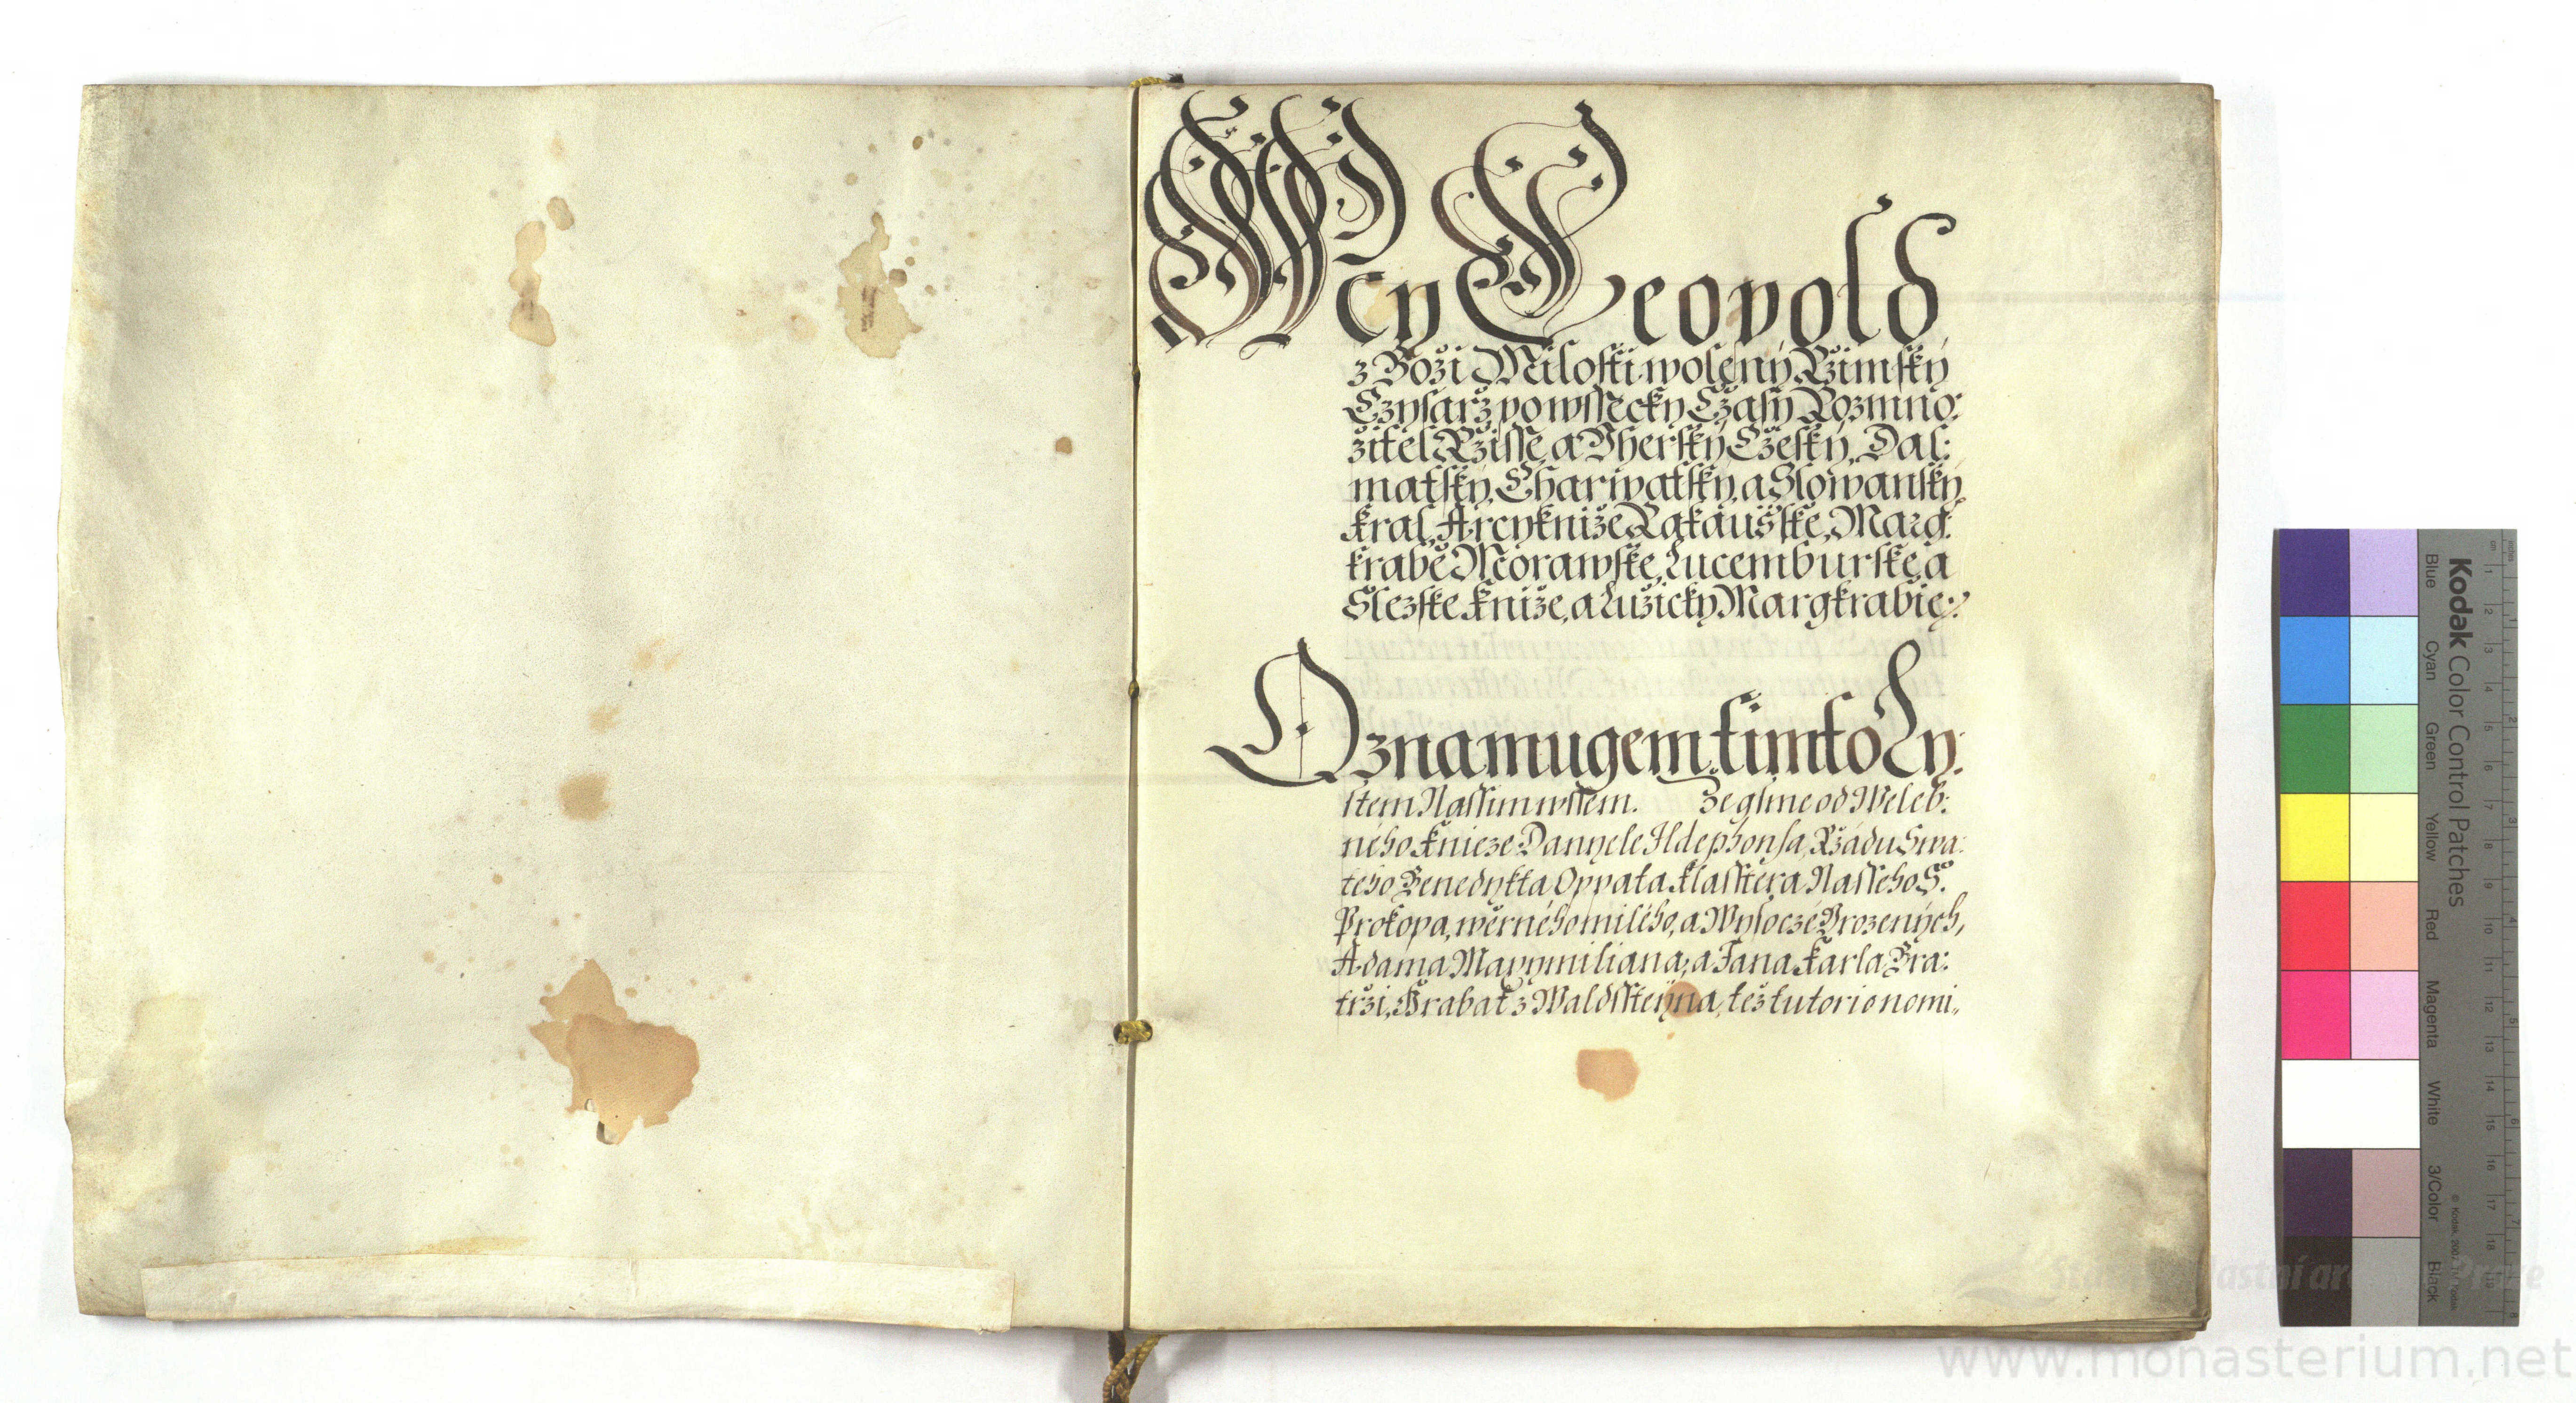 My Leopold
z Boži Milosti wolený Ržimský
Czysarž po wssecky Cžasy Rozmno:
žitel Ržisse, a Vherský, Cžeský, Dal:
matský, Charwatský, a Slowanský,
Kral, Arcykniže Rakauské, Marg:
krabě Morawské, Lucemburské, a
Slezské Kniže, a Lužický Margkrabie:
Oznamugem timto Ly:
stem Nassim wssem. Že gsme od Weleb:
ného Knieze Danyele Ildephonsa, Ržádu Swa:
tého Benedykta, Oppata Klasstera Nasseho S.
Prokopa, wěrného milého, a Wysocze Vrozených,
Adama Maxymiliana, a Jana Karla Bra:
trži, Hrabat z Waldssteyna, též tutorio nomi,,
Kodak Color Control Patches
Blue Cyan Green Yellow Red Magenta White 3/Color Black
www.monasterium.net